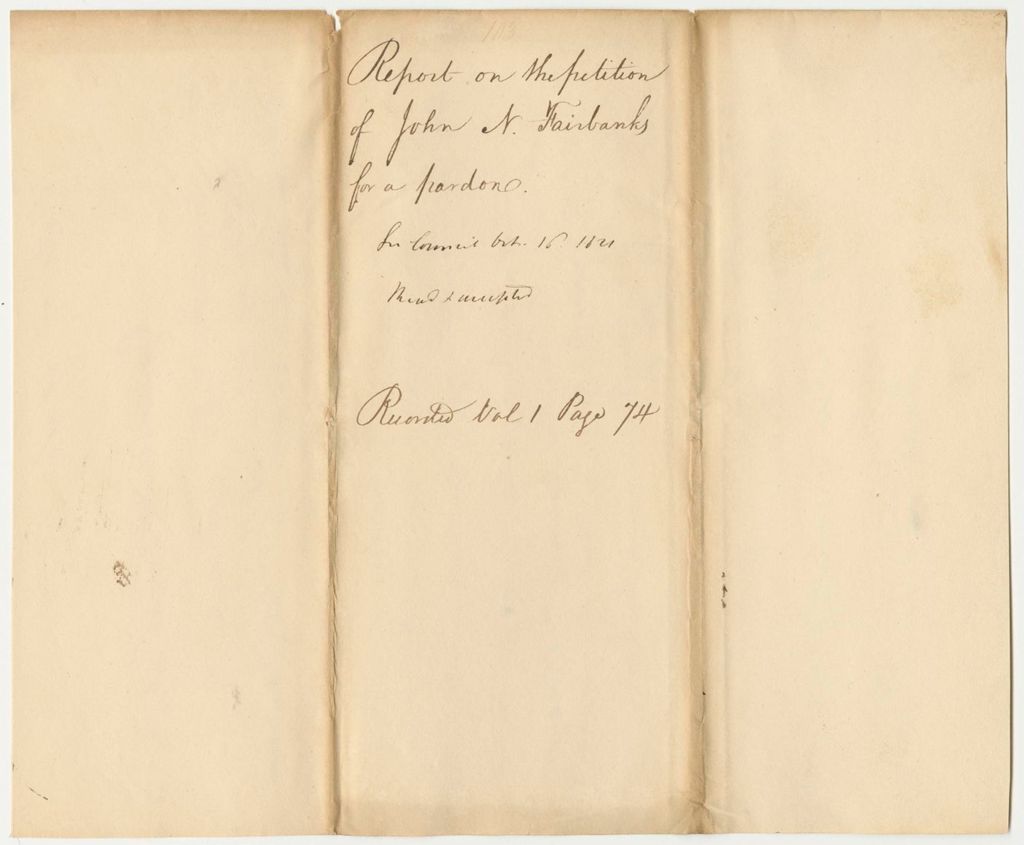 103
Report on the petition
of John N. Fairbanks
for a pardon.
In Council Oct. 16. 1821
Read & accepted
Recorded Vol 1 Page 74